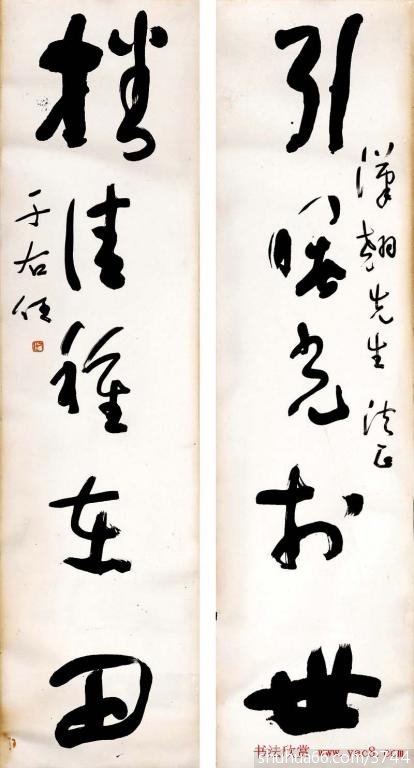 引曙光於世
翹先生 法正
播佳種在田
于右任
书法欣赏 www.yac8.com
shuhua66.com/3744